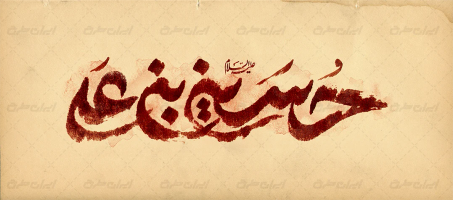 حسین بن علی
علیه السلام